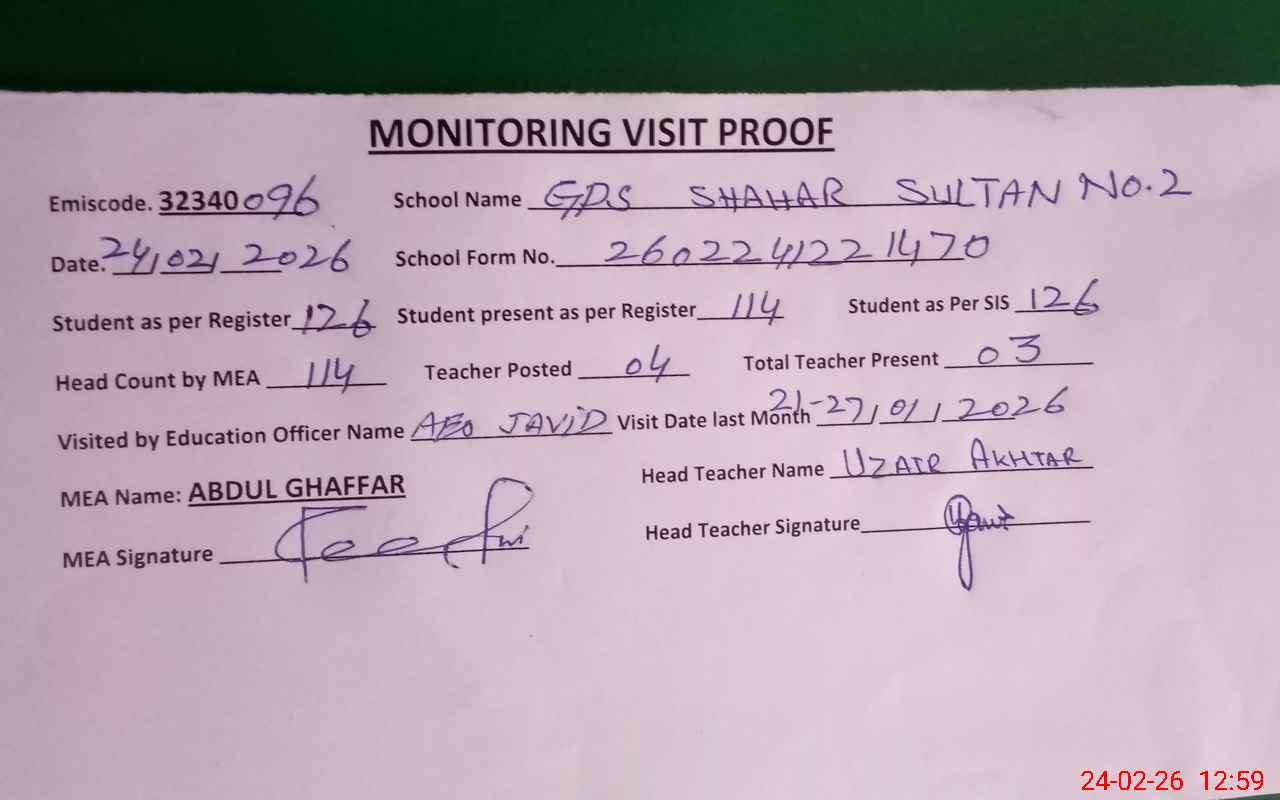 MONITORING VISIT PROOF
Emiscode. 32340096 School Name GPS SHAHAR SULTAN NO.2
Date. 24/02/2026 School Form No. 260224122 1470
Student as per Register 126 Student present as per Register 114 Student as Per SIS 126
Head Count by MEA 114 Teacher Posted 04 Total Teacher Present 03
Visited by Education Officer Name AEO JAVID Visit Date last Month 21-27/01/2026
MEA Name: ABDUL GHAFFAR Head Teacher Name UZAIR AKHTAR
MEA Signature Head Teacher Signature
24-02-26 12:59